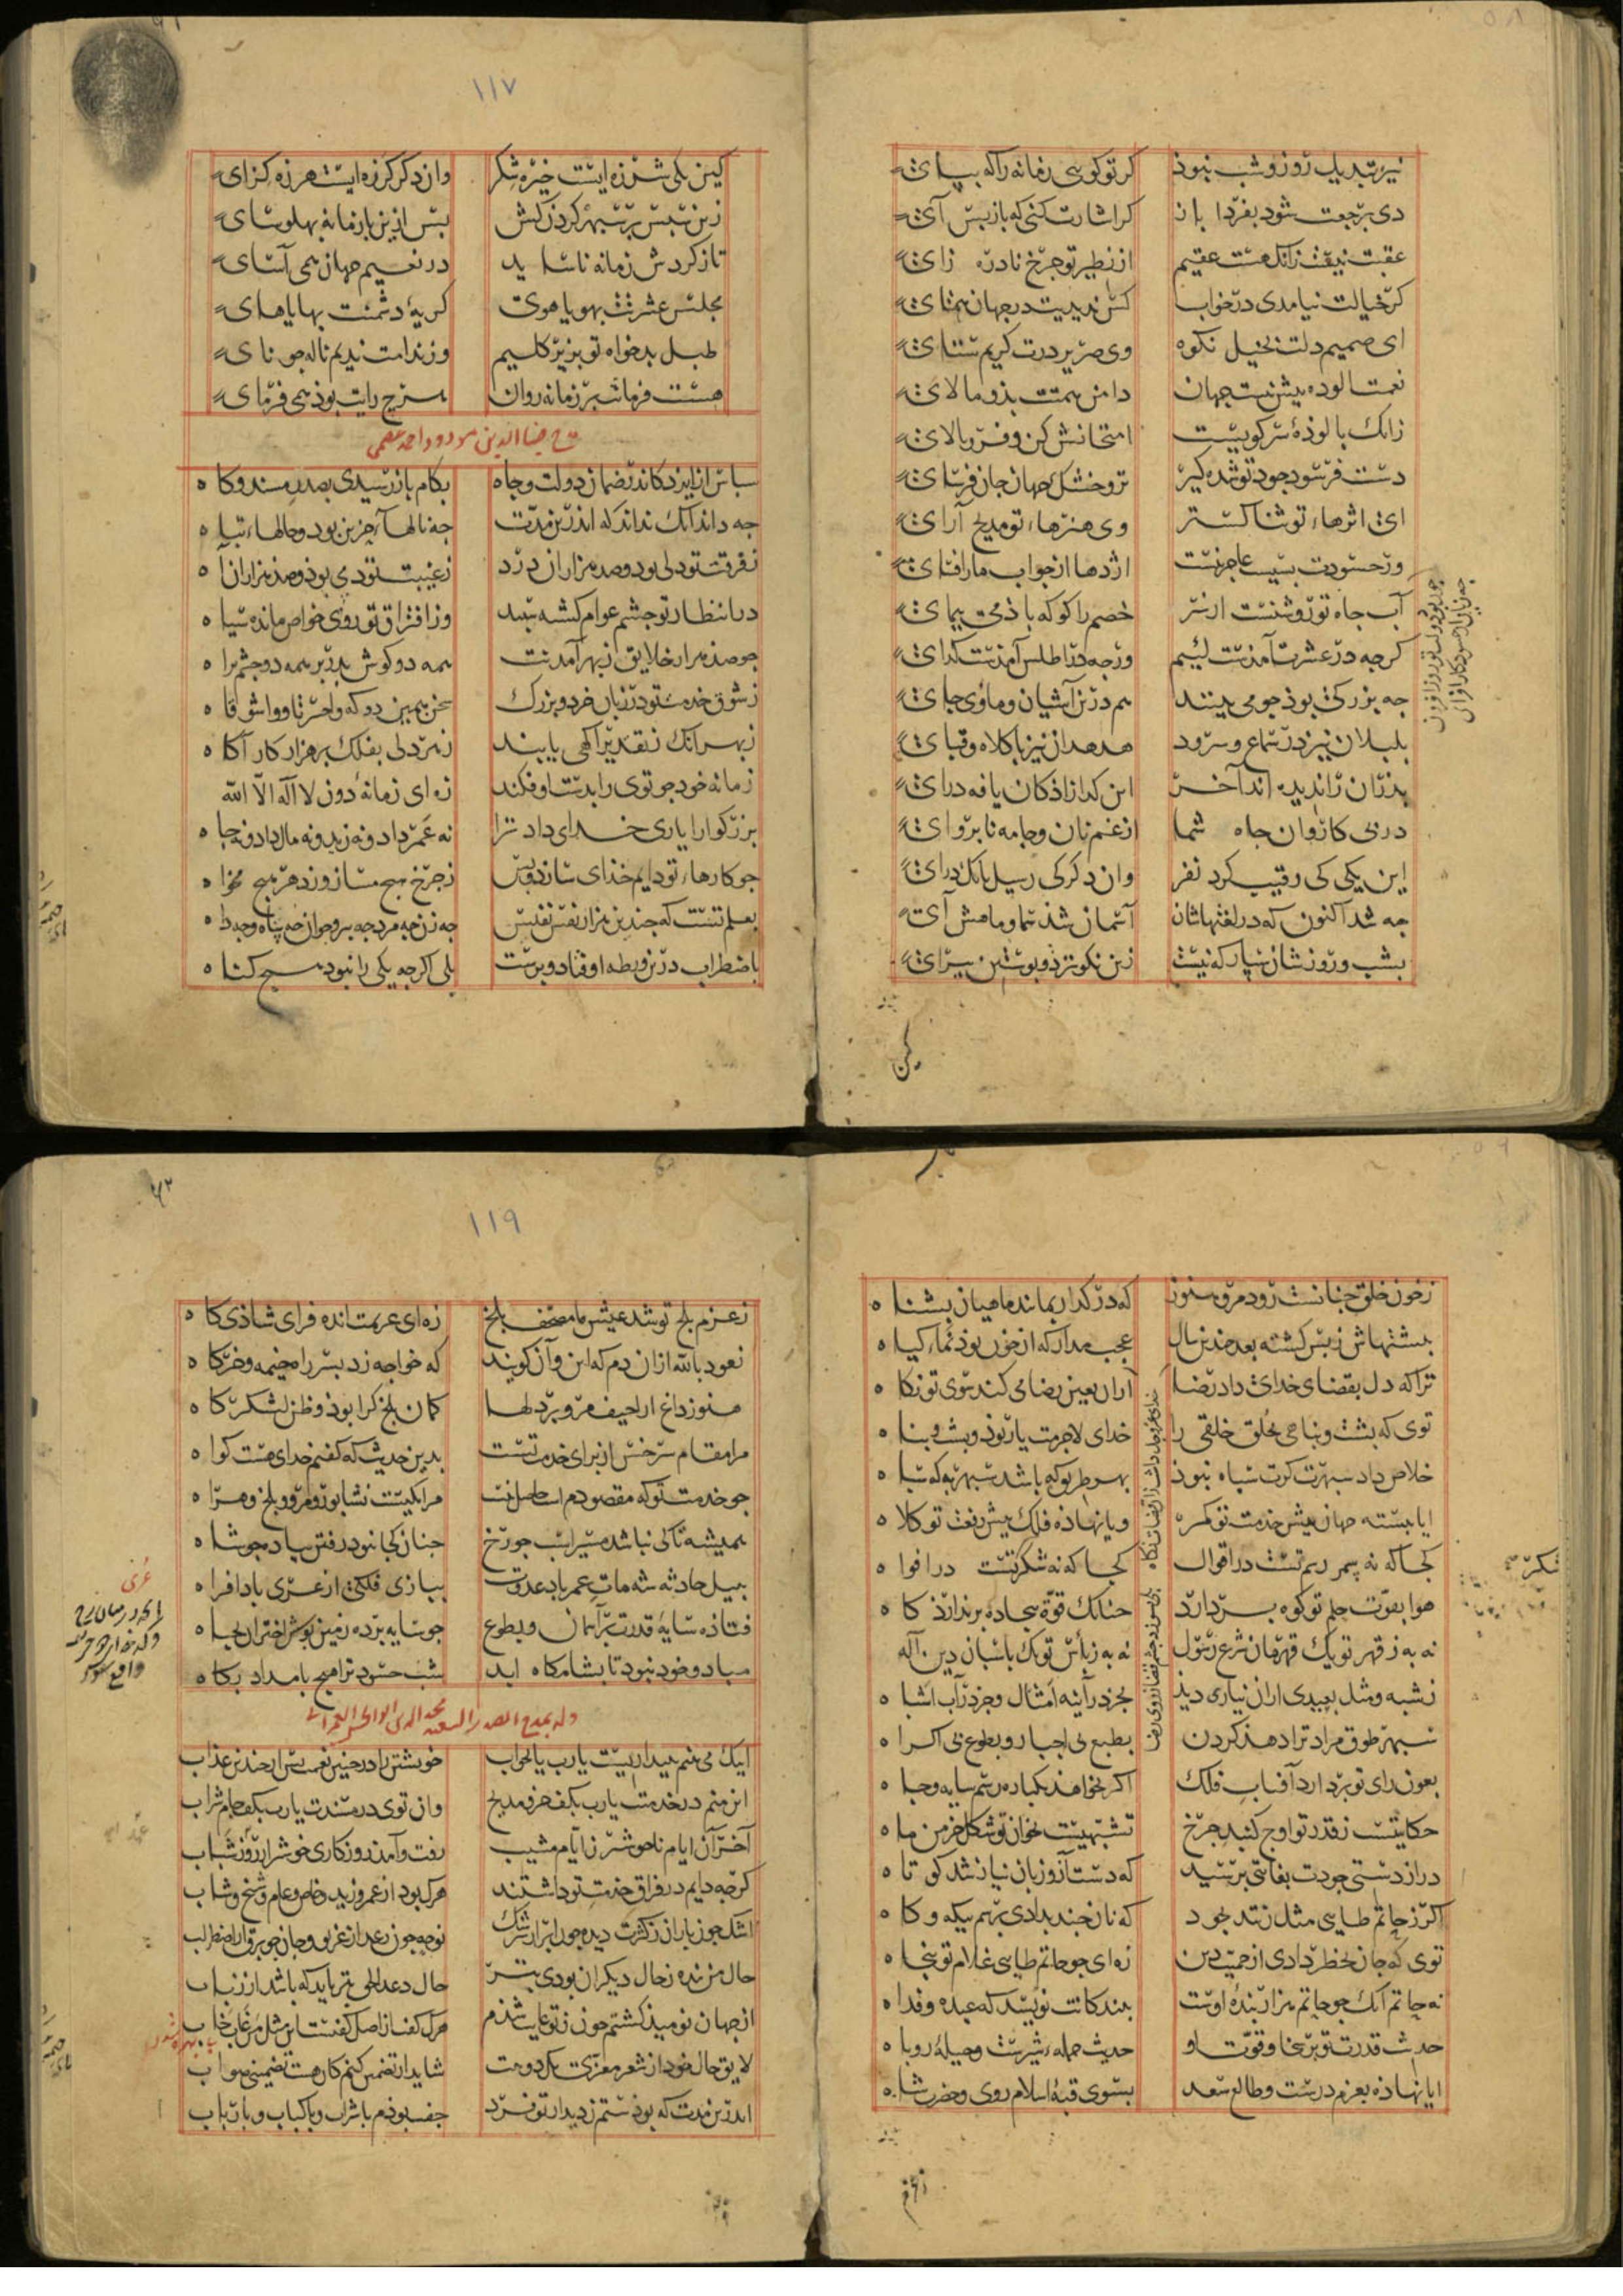 نیز تبدیل روز و شب نبوذ
کر تو کویی زمانه را که بپای
دی برجعت شود بفردا باز
کر اشارت کنی که باز پس آی
عقبت نیفت زانک هست عقیم
از نظیر تو جرخ نادره زای
کر خیالت نیامدی در خواب
کس ندیدیت در جهان همتای
ای صمیم دلت بخیل نکوه
وی صریر درت کریم ستای
نعمت الوده بیش نیست جهان
دامن همت بذو مالای
زانک بالوذهٔ سر کویست
امتحانش کن و فرو بالای
دست فرسود جود تو شده کیر
تر و خشک جهان جان فرسای
ای اثرهاء تو ثنا کستر
وی هنرهاء تو مدیح آرای
ورحسودت بسیست عاجز نیست
اژدها از جواب مار افسای
آب جاه تو روشنست از سر
خصم را کو که باذ می بیمای
کرجه در عشرت آمذست لئیم
ورجه در اطلس آمذست کدای
جه بزرکی بوذ جو می بینند
هم درین آشیان و ماوی جای
بلبلان نیز در سماع و سرود
هدهدان نیز با کلاه و قبای
بذران را ندیده اند آخر
این کدازاذکان یافه درای
در بی کاروان جاه شما
از غم نان و جامه نابروای
این یکی کی رقیب کرد نفر
وان دکر کی رسیل بانک درای
جه شد اکنون که در لغتهاشان
آسمان شذ سما و ماهش آی
بشب و روزشان سپار که نیست
زین نکوتر دو بوستین بیرای
کین
۱۱۷
کین یکی شرزه ایست خیره شکر
وان دکر کرزه ایست هرزه کزای
زین سپس بر سپهر کردن کش
بس ازین باز مانه بهلو سای
تا ز کردش زمانه ناساید
در نعیم جهان همی آسای
مجلس عشرتت بهویاهوی
کریهٔ دشمنت بهایاهای
طبل بدخواه تو بزیر کلیم
وز ندامت ندیم ناله جو نای
هست فرمانت بر زمانه روان
هرج رایت بوذ همی فرمای
مدح ضیاالدین مودود احمد عصمی
سباس ایزد کاندر ضمان دولت و جاه
بکام باز رسیدی بصدر مسند و کاه
جه داند آنک نداند که اندرین مدت
جه نالهاء حزین بود و حالهاء تباه
ز فرقت تو دلی بود و صد هزاران درد
ز غیبت تو دمی بوذ و صد هزاران آه
در انتظار تو جشم عوام کشته سبید
وز افتراق تو روی خواص مانده سیاه
جو صد هزار خلایق ز بهر آمدنت
همه دو کوش بدر بر همه دو جشم براه
ز شوق خدمت تو در زبان خرد و بزرک
سخن همین دو که واحسرتا و واشوقاه
ز بهر آنک ز تقدیر آکهی یابند
ز هر دلی بفلک بر هزار کارآکاه
زمانه خود جو توی را بدست او فکند
زه ای زمانهٔ دون لا اله الا الله
بزرکوارا یاری خدای داد ترا
نه عمر داد و نه زید و نه مال داد و نه جاه
جو کارهاء تو دایم خذای سازد و بس
ز جرخ هیج مساز و ز دهر هیج مخواه
بعلم تست که جندین هزار نفس نفیس
جه زن جه مرد جه بیر و جوان جه بناه وجه
باضطراب درین ورطه اوفتاد و برست
بلی اکرجه یکی را نبود هیج کناه
ز خون خلق جنانست رود مرو هنوز
که در کدار بمانده ماهیان بشناه
بیشتهاش ز بس کشته بعد جندین سال
عجب مدار که از خون بوذ نماء کیاه
ترا که دل بقضای خدای داد رضا
از ان بعین رضا می کند سوی تو نکاه
توی که بشت و بناهی بخلق خلقی را
خدای لاجرمت یار بوذ و بشت و بناه
خلاص داد سبهرت کرت سباه نبوذ
ایا ببسته جهان بیش خدمت تو کمر
ویا نهاذه فلک بیش رفعت تو کلاه
کجا که نه بمر رسم تست در اقوال
کجا که نه شکر تست در افواه
هوا بقوت حلم تو کوه بر دارد
جنانک قوه بیجاده بر ندارذ کاه
نه به ز قهر تو یک قهرمان شرع رسول
نه به ز بأس تو یک باسبان دین اله
ز شبه و مثل بعیدی ازان نیاری دید
بجز در آینه امثال و جز در آب اشباه
سبهر طوق مراد ترا دهذ کردن
بطبع بی اجبار و بطوع بی اکراه
بعون رای تو بر دارد آفتاب فلک
اکر بخواهذ یکباره رسم سایه و جاه
حکایتیست ز قدر تو اوج کنبد جرخ
تشبهیست ز خوان تو شکل خرمن ماه
دراز دستی جودت بغایتی برسید
که دست آز و زبان نیاز شد کوتاه
اکر ز حاتم طایی مثل زنند بجود
که نان جند بدادی بهر بیکه و کاه
توی که جان بخطر دادی از حمیت دین
زه ای جو حاتم طایی غلام تو بنجاه
نه حاتم آنک جو حاتم هزار بندهٔ اوست
ببندکانت نویسد که عبده و فداه
حدیث قدرت تو بر سخا و قوت او
حدیث حملهء شیرست و حیلهٔ روباه
ایا نهاذه بعزم درست و طالع سعد
بسوی قبهٔ اسلام روی و حضرت شاه
۱۱۹
ز عزم بلخ تو شد عیش ما مصحف بلخ
زه ای عزیمت انده فزای شاذی کاه
نعوذ بالله ازان دم که این و آن کویند
که خواجه زد بسر راه خیمه و خرکاه
هنوز داغ اراجیف مرو بر دلها
کمان بلخ کرا بوذ و ظن لشکرکاه
مرا مقام سرخس از برای خدمت تست
بدین حدیث که کفتم خدای هست کواه
جو خدمت تو که مقصودم است حاصل نیست
مرا یکیست نشابور و مرو و بلخ و هراه
همیشه تا که نباشد مسیر اسب جو رخ
جنان کجا نبود رفتن بیاده جو شاه
ببیل حادثه شه مات عمر باد عدوت
ببازی فلکی از عری بادافراه
فتاذه سایهٔ قدرت بر آسمان و بطوع
جو سایه برده زمین بوس اختران بجباه
مباد و خود نبود تا بشامکاه ابد
شب حسود ترا هیج بامداد بکاه
وله یمدح الصدر السعید مجد الدین ابو الحسن العمرانی
اینک می بینم ببیداریست یا رب یا بخواب
خویشتن را در جنین نعمت بس از جندین عذاب
این منم در خدمتت یا رب بکف حرف مدیح
وان توی در مسندت یا رب بکف جام شراب
آخر آن ایام ناخوشتر ز ایام مشیب
رفت و آمذ روزکاری خوشتر از روز شباب
کرجه دایم در فراق خدمت تو داشتند
هرک بود از عمرو و زید و خاص و عام و شیخ و شاب
اشک جون باران ز کثرت دیده جون ابر از سرشک
نوحه جون رعد از غریو و جان جو برق از اضطراب
حال من بنده ز حال دیکران بودی بتر
حال دعد الحق بتر باید که باشد از رباب
از جهان نومیذ کشتم جون ز تو غایب شذم
هرک کفت از اصل کفتست این مثل من غاب خاب
لایق حال خود از شعر معزی یک دو بیت
شاید ار تضمین کنم کان هست تضمینی صواب
اندرین مدت که بوذستم ز دیدار تو فرد
جفت بوذم با شراب و با کباب و با رباب